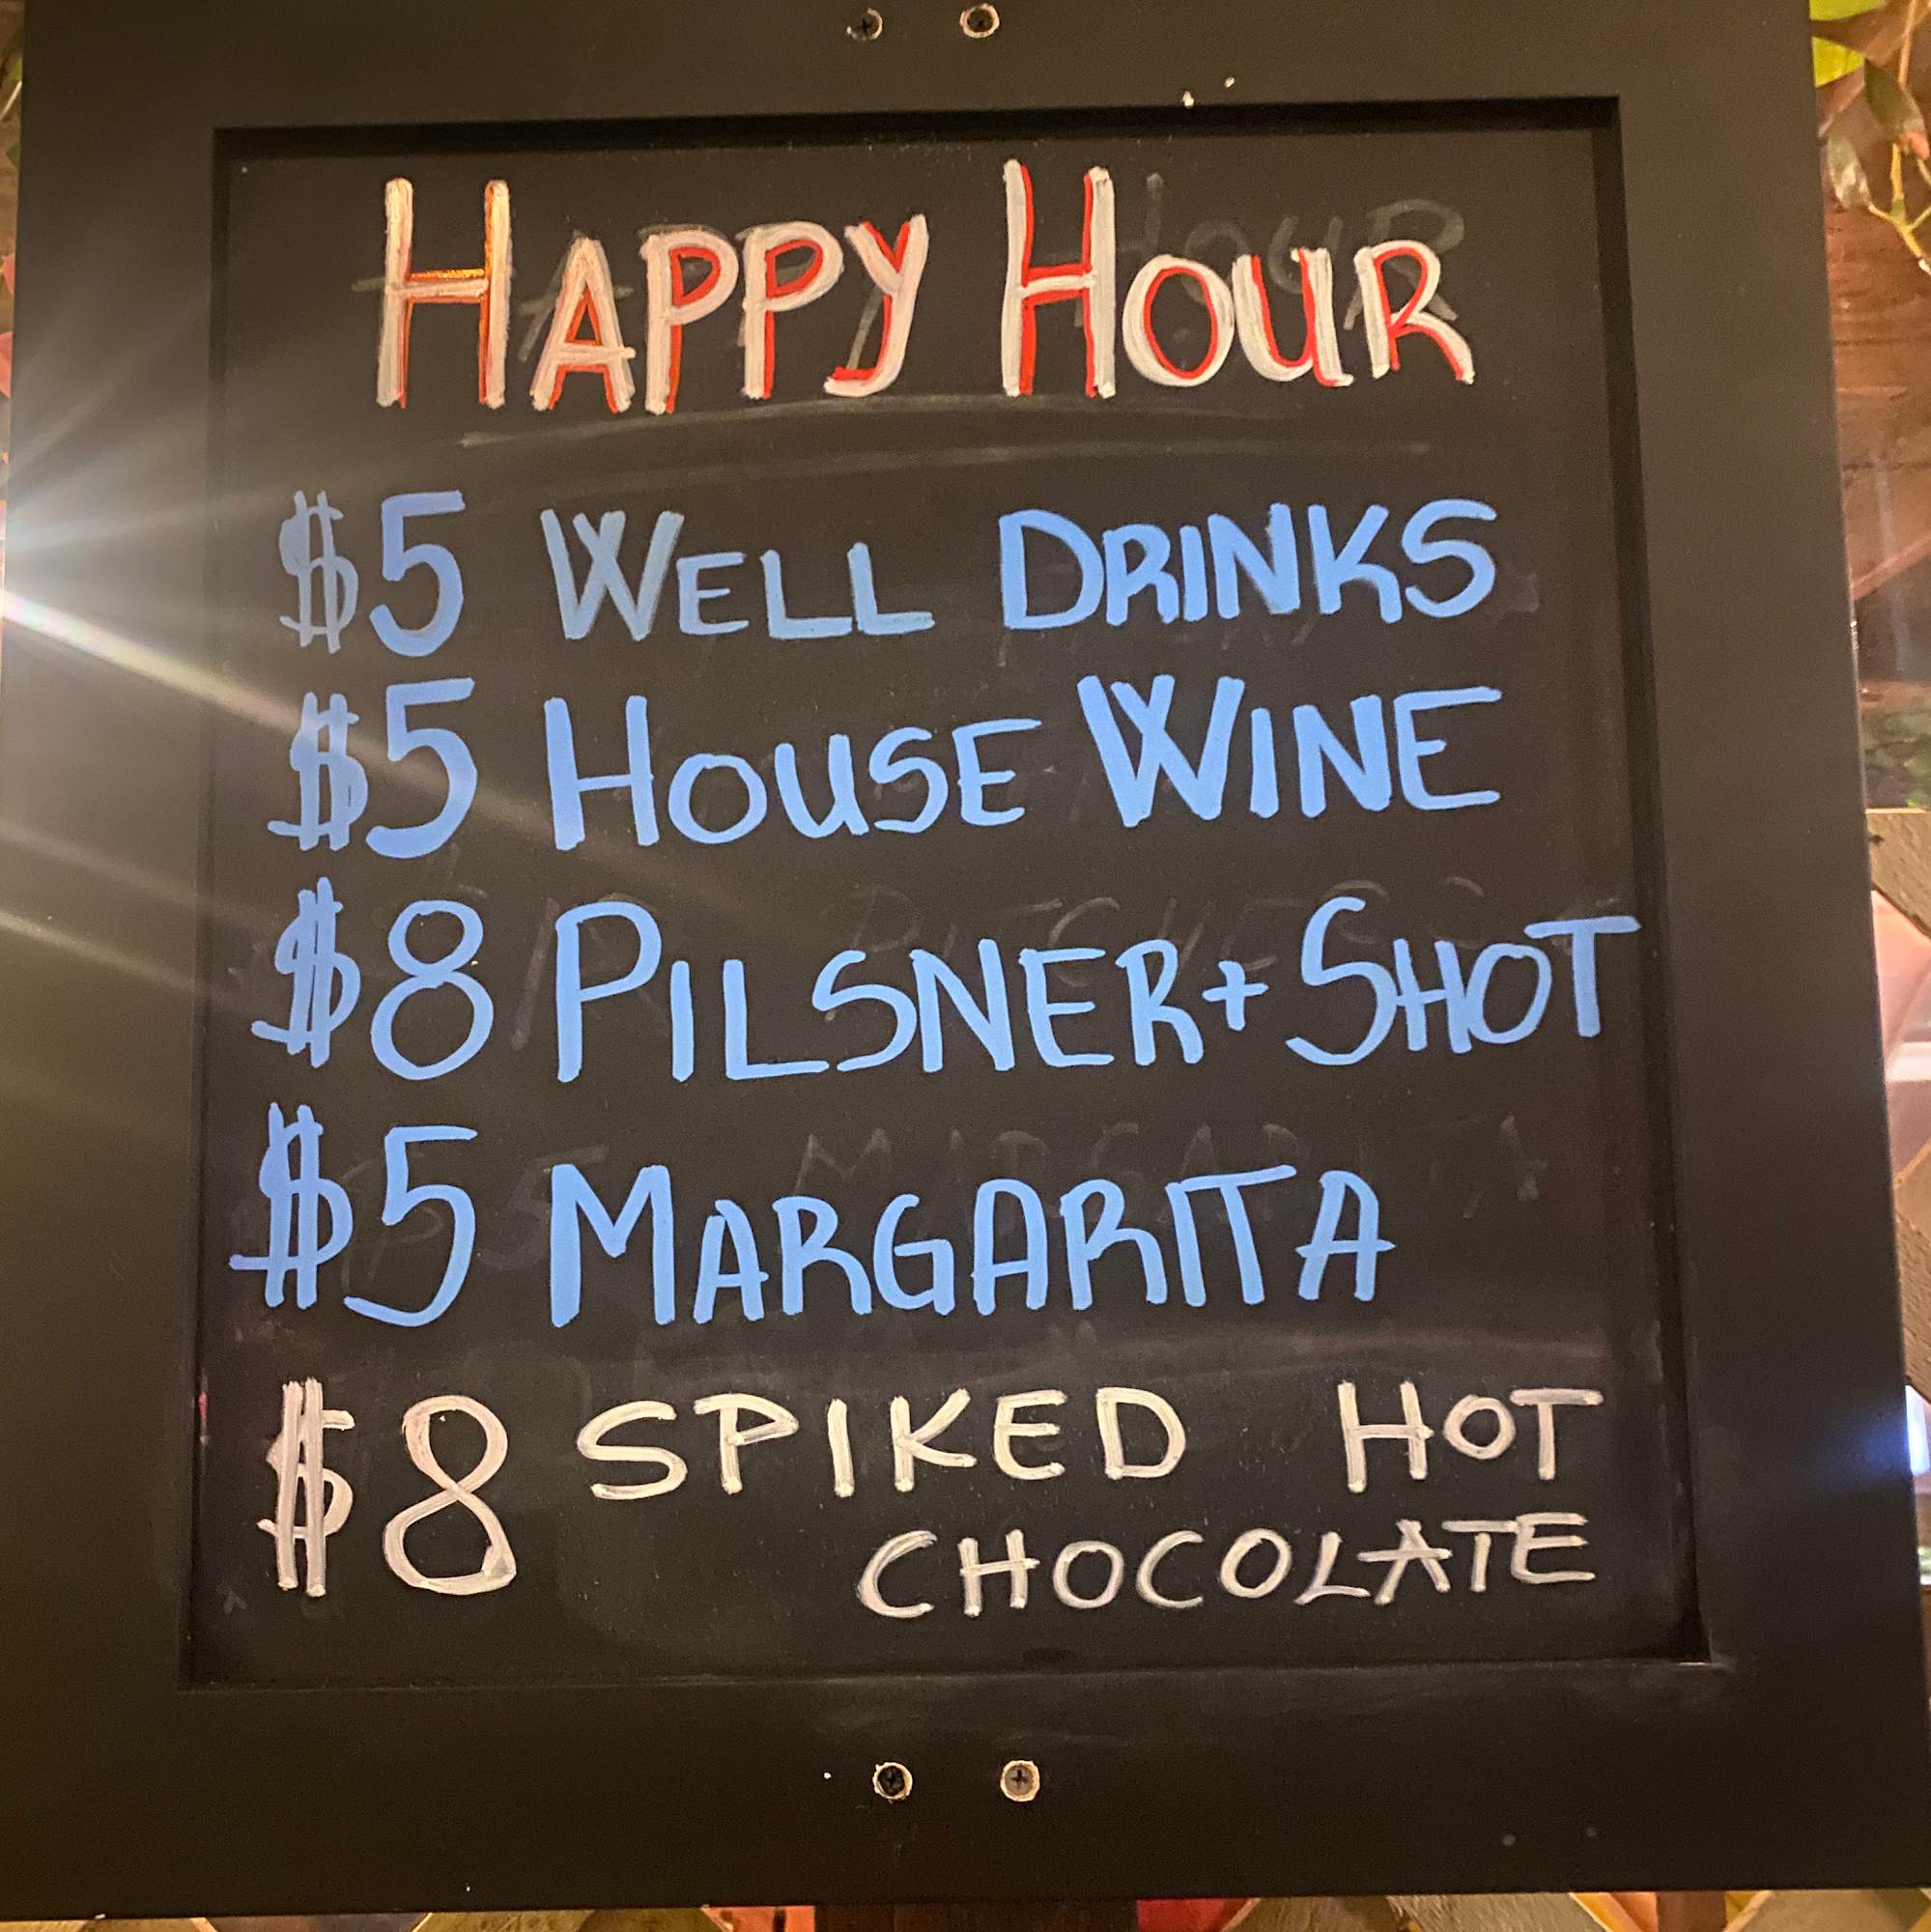 HAPPY HOUR
$5 WELL DRINKS
$5 HOUSE WINE
$8 PILSNER + SHOT
$5 MARGARITA
$8 SPIKED HOT
CHOCOLATE